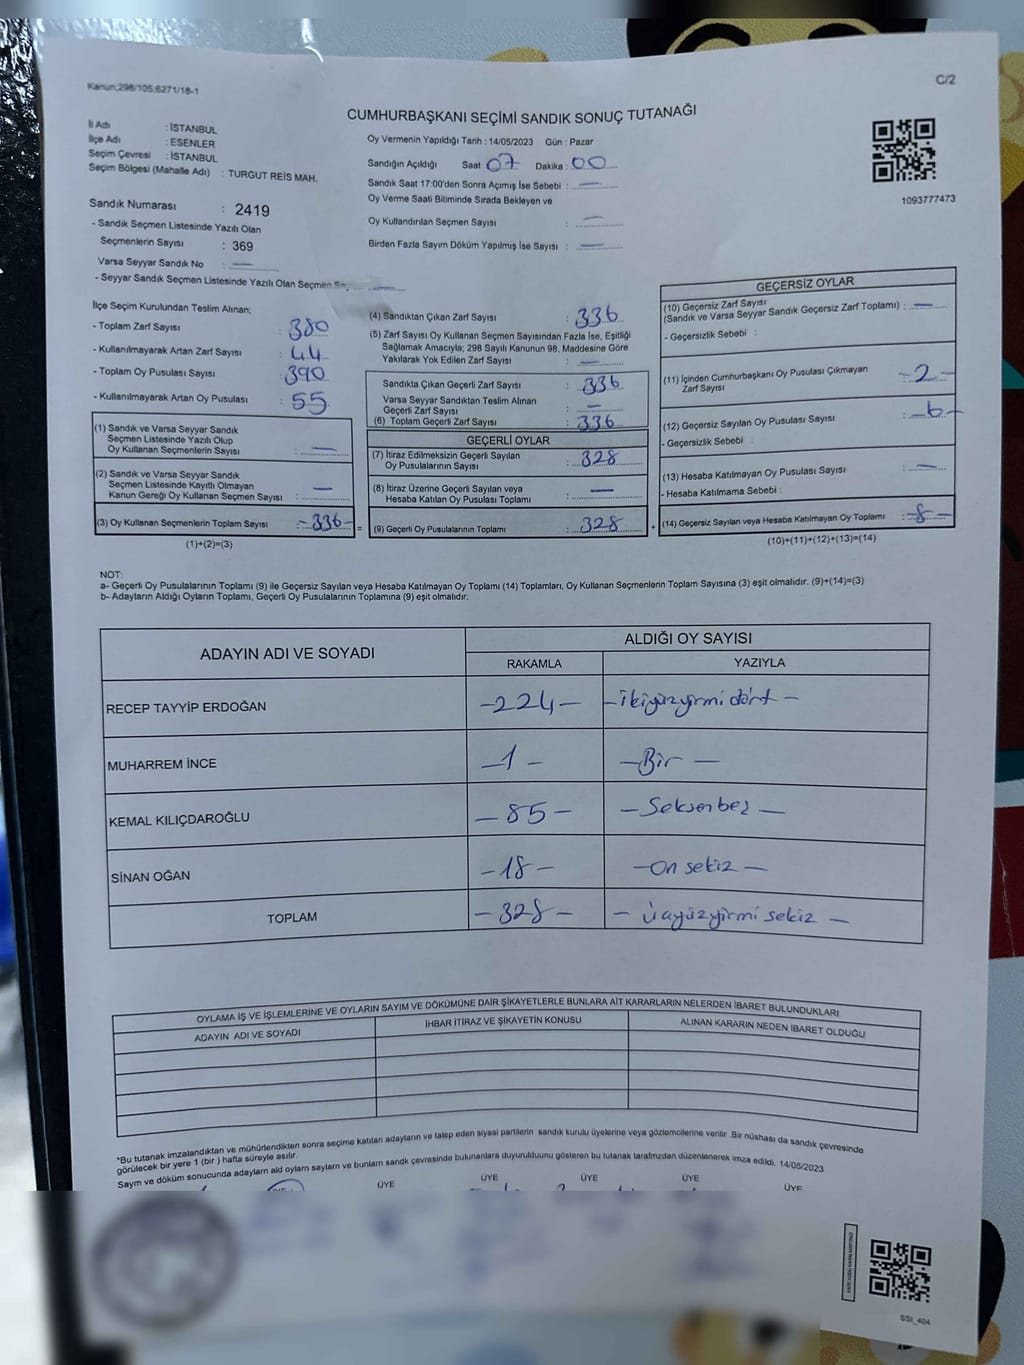 Kanun;298/105;6271/18-1
C/2
CUMHURBAŞKANI SEÇİMİ SANDIK SONUÇ TUTANAĞI
İl Adı : İSTANBUL
İlçe Adı : ESENLER
Seçim Çevresi : İSTANBUL
Seçim Bölgesi (Mahalle Adı) : TURGUT REİS MAH.
Sandık Numarası : 2419
- Sandık Seçmen Listesinde Yazılı Olan
Seçmenlerin Sayısı : 369
Varsa Seyyar Sandık No : —
- Seyyar Sandık Seçmen Listesinde Yazılı Olan Seçmen —
Oy Vermenin Yapıldığı Tarih : 14/05/2023 Gün : Pazar
Sandığın Açıldığı Saat 07 Dakika : 00
Sandık Saat 17:00'den Sonra Açımış İse Sebebi : —
Oy Verme Saati Bitiminde Sırada Bekleyen ve
Oy Kullandırılan Seçmen Sayısı : —
Birden Fazla Sayım Döküm Yapılmış İse Sayısı : —
1093777473
İlçe Seçim Kurulundan Teslim Alınan;
- Toplam Zarf Sayısı : 380
- Kullanılmayarak Artan Zarf Sayısı : 44
- Toplam Oy Pusulası Sayısı : 390
- Kullanılmayarak Artan Oy Pusulası : 55
(1) Sandık ve Varsa Seyyar Sandık
Seçmen Listesinde Yazılı Olup
Oy Kullanan Seçmenlerin Sayısı : —
(2) Sandık ve Varsa Seyyar Sandık
Seçmen Listesinde Kayıtlı Olmayan
Kanun Gereği Oy Kullanan Seçmen Sayısı : —
(3) Oy Kullanan Seçmenlerin Toplam Sayısı : -336-
(1)+(2)=(3)
(4) Sandıktan Çıkan Zarf Sayısı : 336
(5) Zarf Sayısı Oy Kullanan Seçmen Sayısından Fazla İse, Eşitliği
Sağlamak Amacıyla; 298 Sayılı Kanunun 98. Maddesine Göre
Yakılarak Yok Edilen Zarf Sayısı : —
Sandıkta Çıkan Geçerli Zarf Sayısı : 336
Varsa Seyyar Sandıktan Teslim Alınan
Geçerli Zarf Sayısı : —
(6) Toplam Geçerli Zarf Sayısı : 336
GEÇERLİ OYLAR
(7) İtiraz Edilmeksizin Geçerli Sayılan
Oy Pusulalarının Sayısı : 328
(8) İtiraz Üzerine Geçerli Sayılan veya
Hesaba Katılan Oy Pusulası Toplamı : —
= (9) Geçerli Oy Pusulalarının Toplamı : 328 +
GEÇERSİZ OYLAR
(10) Geçersiz Zarf Sayısı
(Sandık ve Varsa Seyyar Sandık Geçersiz Zarf Toplamı) : —
- Geçersizlik Sebebi :
(11) İçinden Cumhurbaşkanı Oy Pusulası Çıkmayan
Zarf Sayısı : -2-
(12) Geçersiz Sayılan Oy Pusulası Sayısı : -6-
- Geçersizlik Sebebi :
(13) Hesaba Katılmayan Oy Pusulası Sayısı : —
- Hesaba Katılmama Sebebi :
(14) Geçersiz Sayılan veya Hesaba Katılmayan Oy Toplamı : -8-
(10)+(11)+(12)+(13)=(14)
NOT:
a- Geçerli Oy Pusulalarının Toplamı (9) ile Geçersiz Sayılan veya Hesaba Katılmayan Oy Toplamı (14) Toplamları, Oy Kullanan Seçmenlerin Toplam Sayısına (3) eşit olmalıdır. (9)+(14)=(3)
b- Adayların Aldığı Oyların Toplamı, Geçerli Oy Pusulalarının Toplamına (9) eşit olmalıdır.
ADAYIN ADI VE SOYADI
ALDIĞI OY SAYISI
RAKAMLA YAZIYLA
RECEP TAYYİP ERDOĞAN -224- -ikiyüzyirmi dört-
MUHARREM İNCE -1- -Bir-
KEMAL KILIÇDAROĞLU -85- -Seksenbeş-
SİNAN OĞAN -18- -On sekiz-
TOPLAM -328- -Üçyüzyirmi sekiz-
OYLAMA İŞ VE İŞLEMLERİNE VE OYLARIN SAYIM VE DÖKÜMÜNE DAİR ŞİKAYETLERLE BUNLARA AİT KARARLARIN NELERDEN İBARET BULUNDUKLARI
ADAYIN ADI VE SOYADI İHBAR İTİRAZ VE ŞİKAYETİN KONUSU ALINAN KARARIN NEDEN İBARET OLDUĞU
*Bu tutanak imzalandıktan ve mühürlendikten sonra seçime katılan adayların ve talep eden siyasi partilerin sandık kurulu üyelerine veya gözlemcilerine verilir. Bir nüshası da sandık çevresinde
görülecek bir yere 1 (bir ) hafta süreyle asılır.
Sayım ve döküm sonucunda adayların ald oyların sayların ve bunların sandk çevresinde bulunanlara duyurulduunu gösteren bu tutanak tarafmzdan düzenlenerek imza edildi. 14/05/2023
ÜYE ÜYE ÜYE ÜYE ÜYE
SSI_404